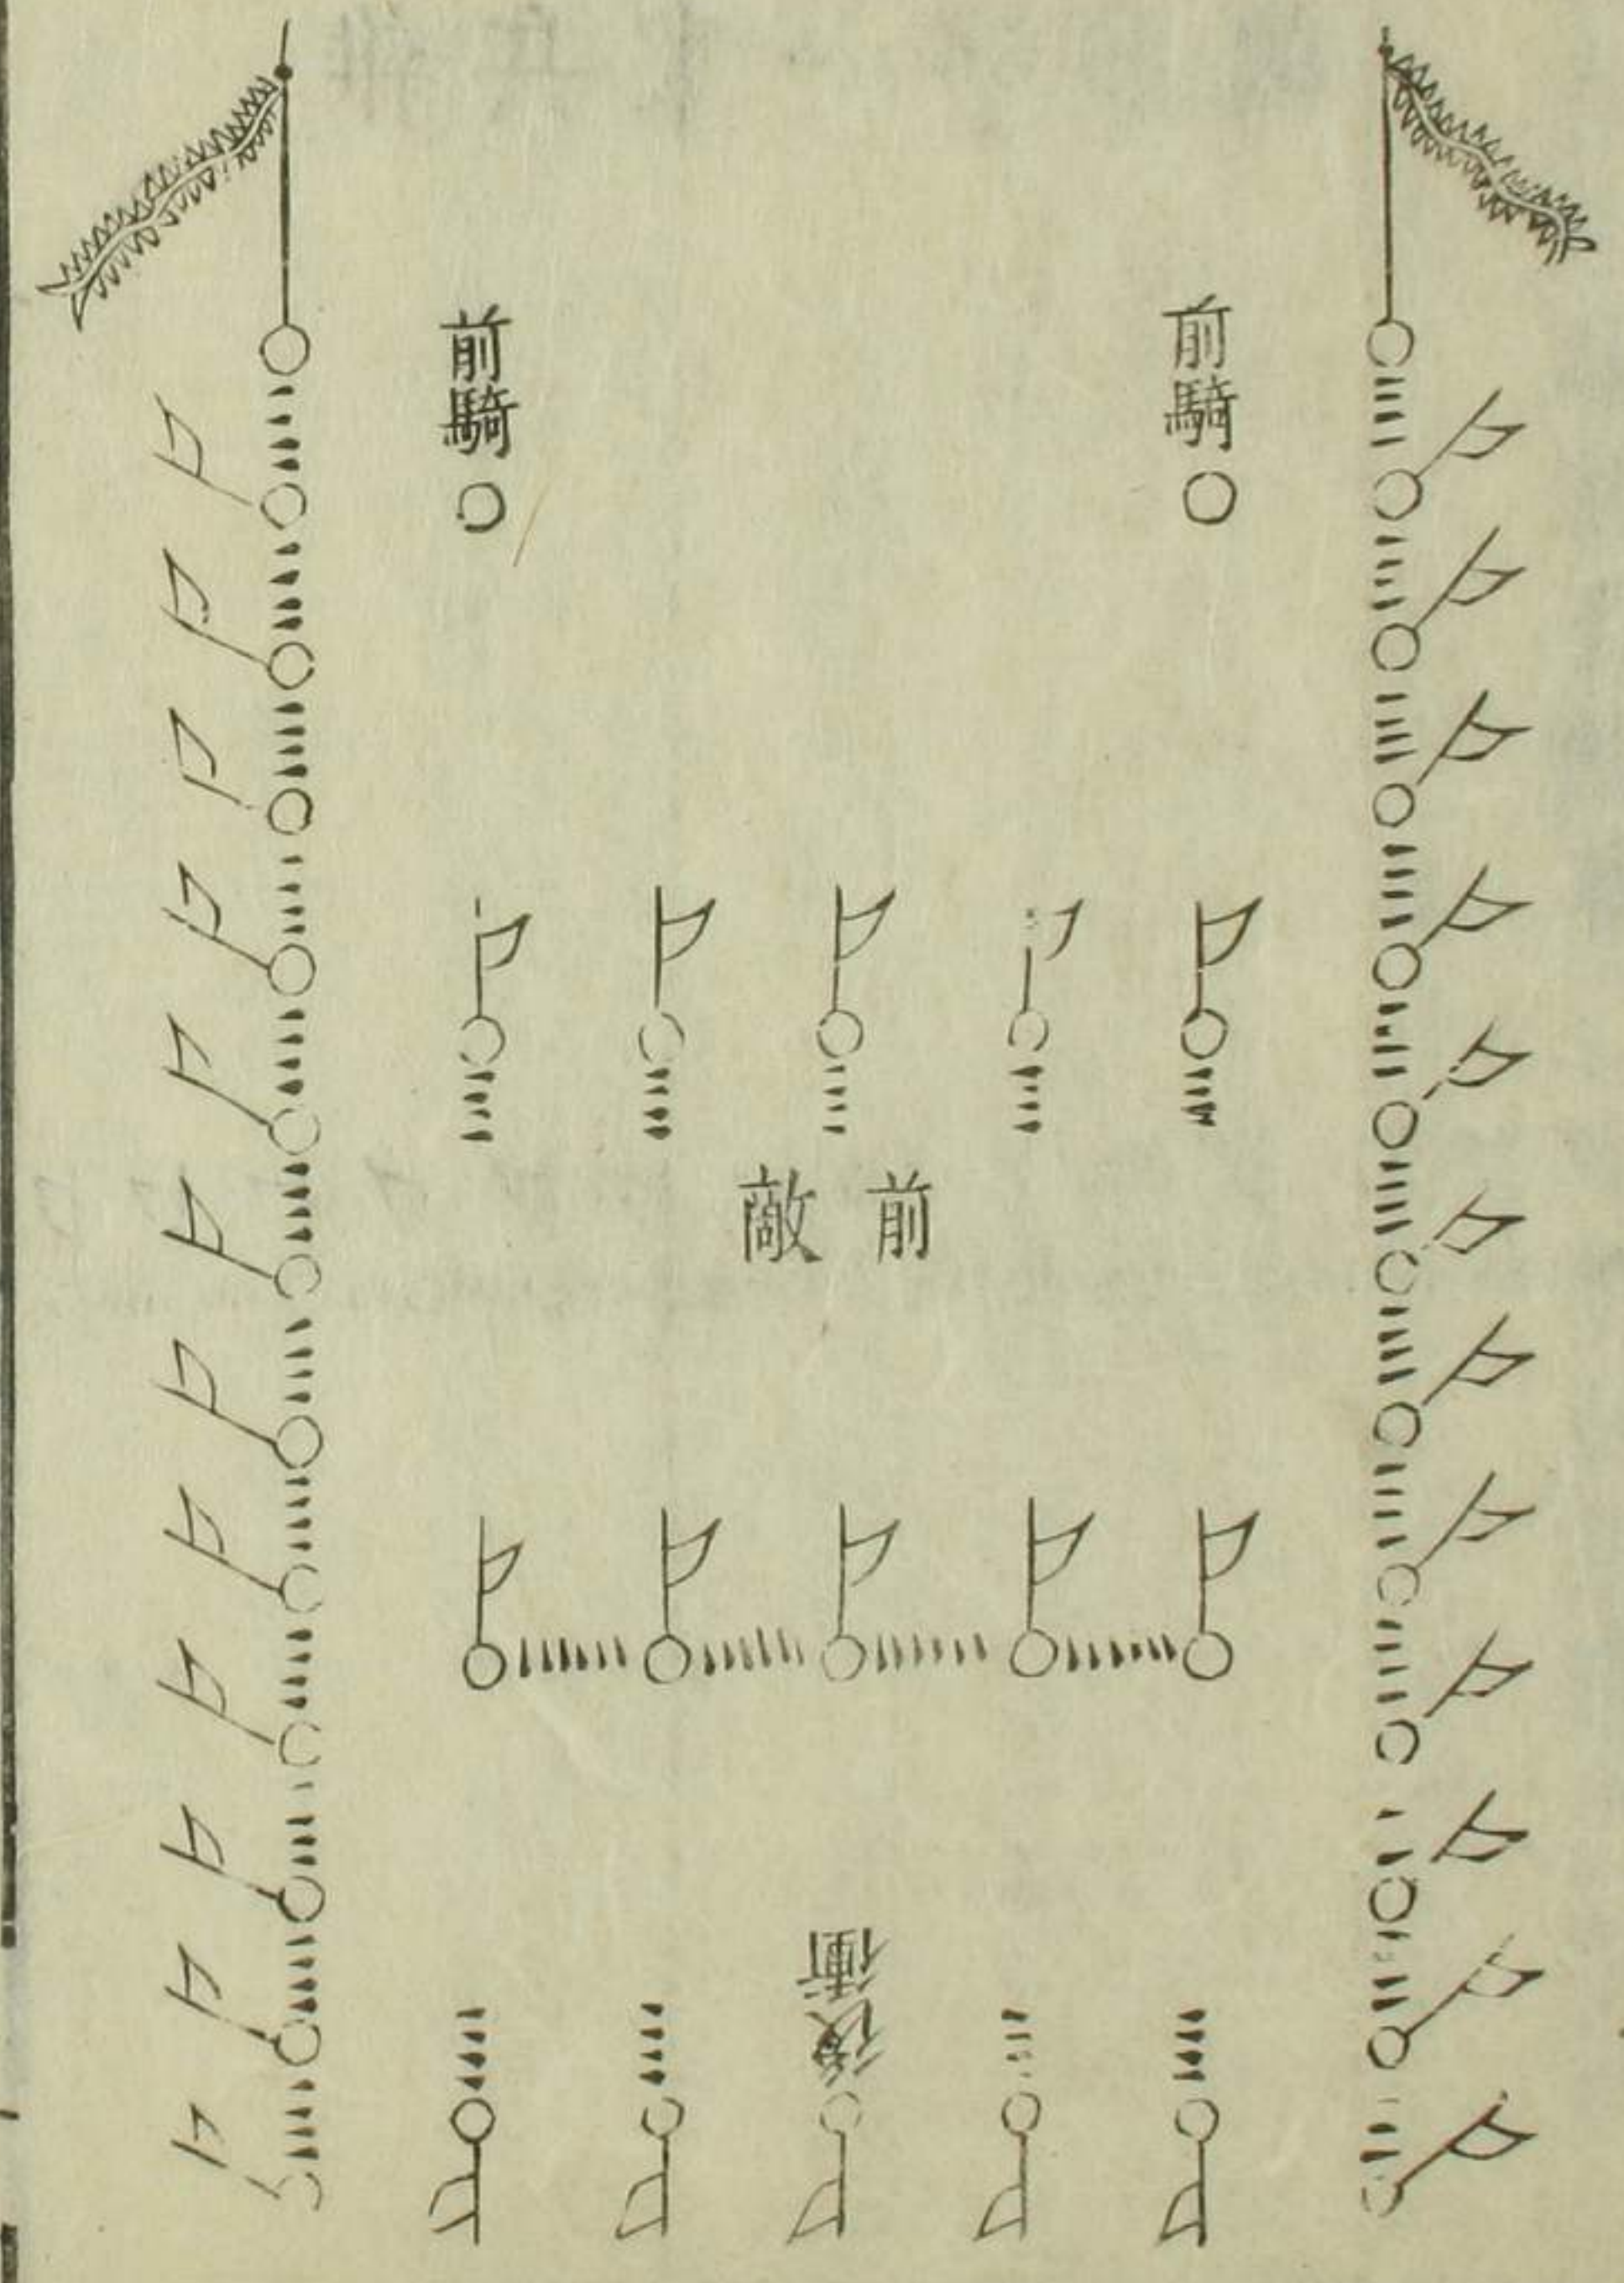 前騎
前騎
前敵
後衝